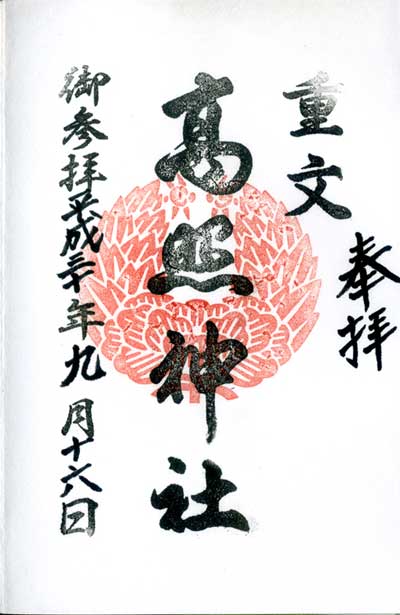 奉拝
重文
高照神社
御参拝平成三十年九月十六日